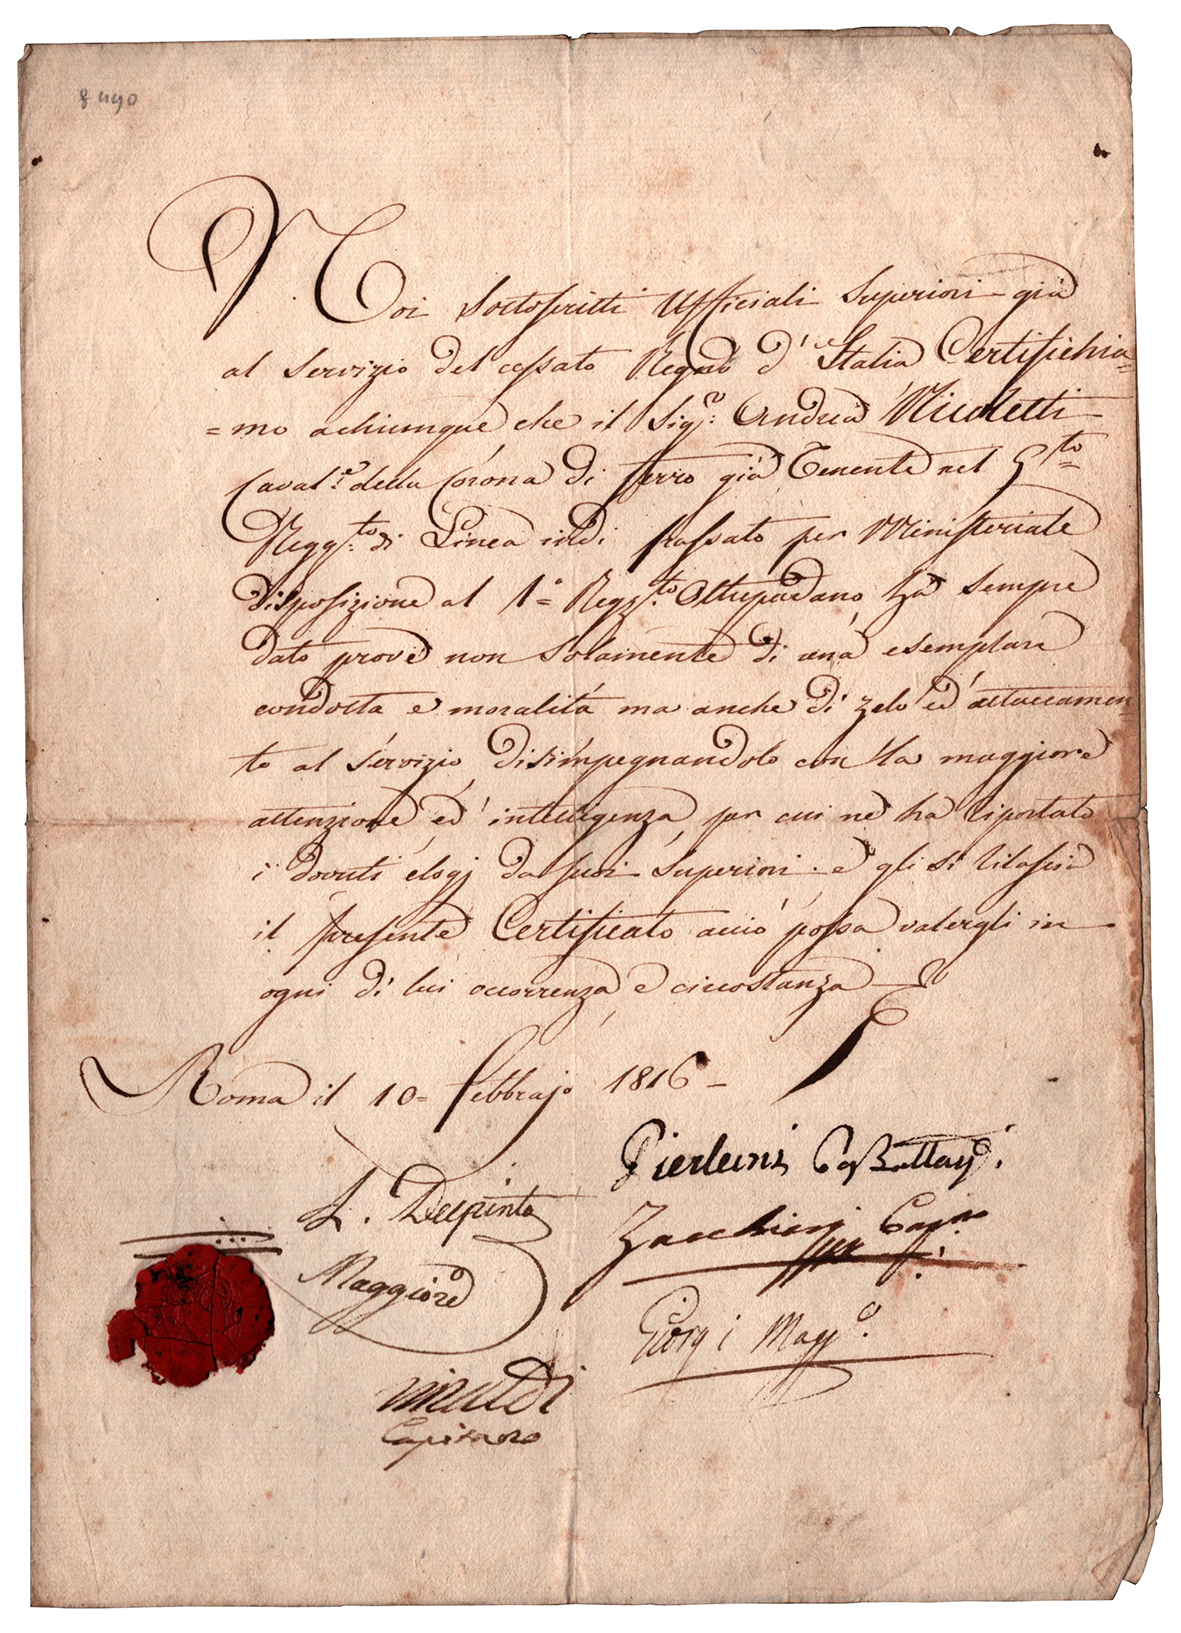 Noi Sottoscritti Ufficiali Superiori già
al Servizio del cessato Regno d'Italia Certifichia=
=mo achiunque che il Sig.r Andrea Nicoletti
Caval.re della Corona di ferro già Tenente nel 5to=
Regg.to di Linea indi passato per Ministeriale
disposizione al 1°= Regg.to Oltrepadano, ha sempre
dato prove non solamente di una esemplare
condotta e moralità ma anche di zelo ed attaccamen=
to al servizio, disimpegnandolo con la maggiore
attenzione ed intelligenza, per cui ne ha riportato
i dovuti elogj da suoi Superiori. e gli si rilascia
il presente Certificato acciò possa valergli in
ogni di lui occorrenza e circostanza
Roma il 10= Febbrajo 1816
Pierleoni Capo Battag.
L. Delpinto
Maggiore
Giorgi Magg.e
Capitano